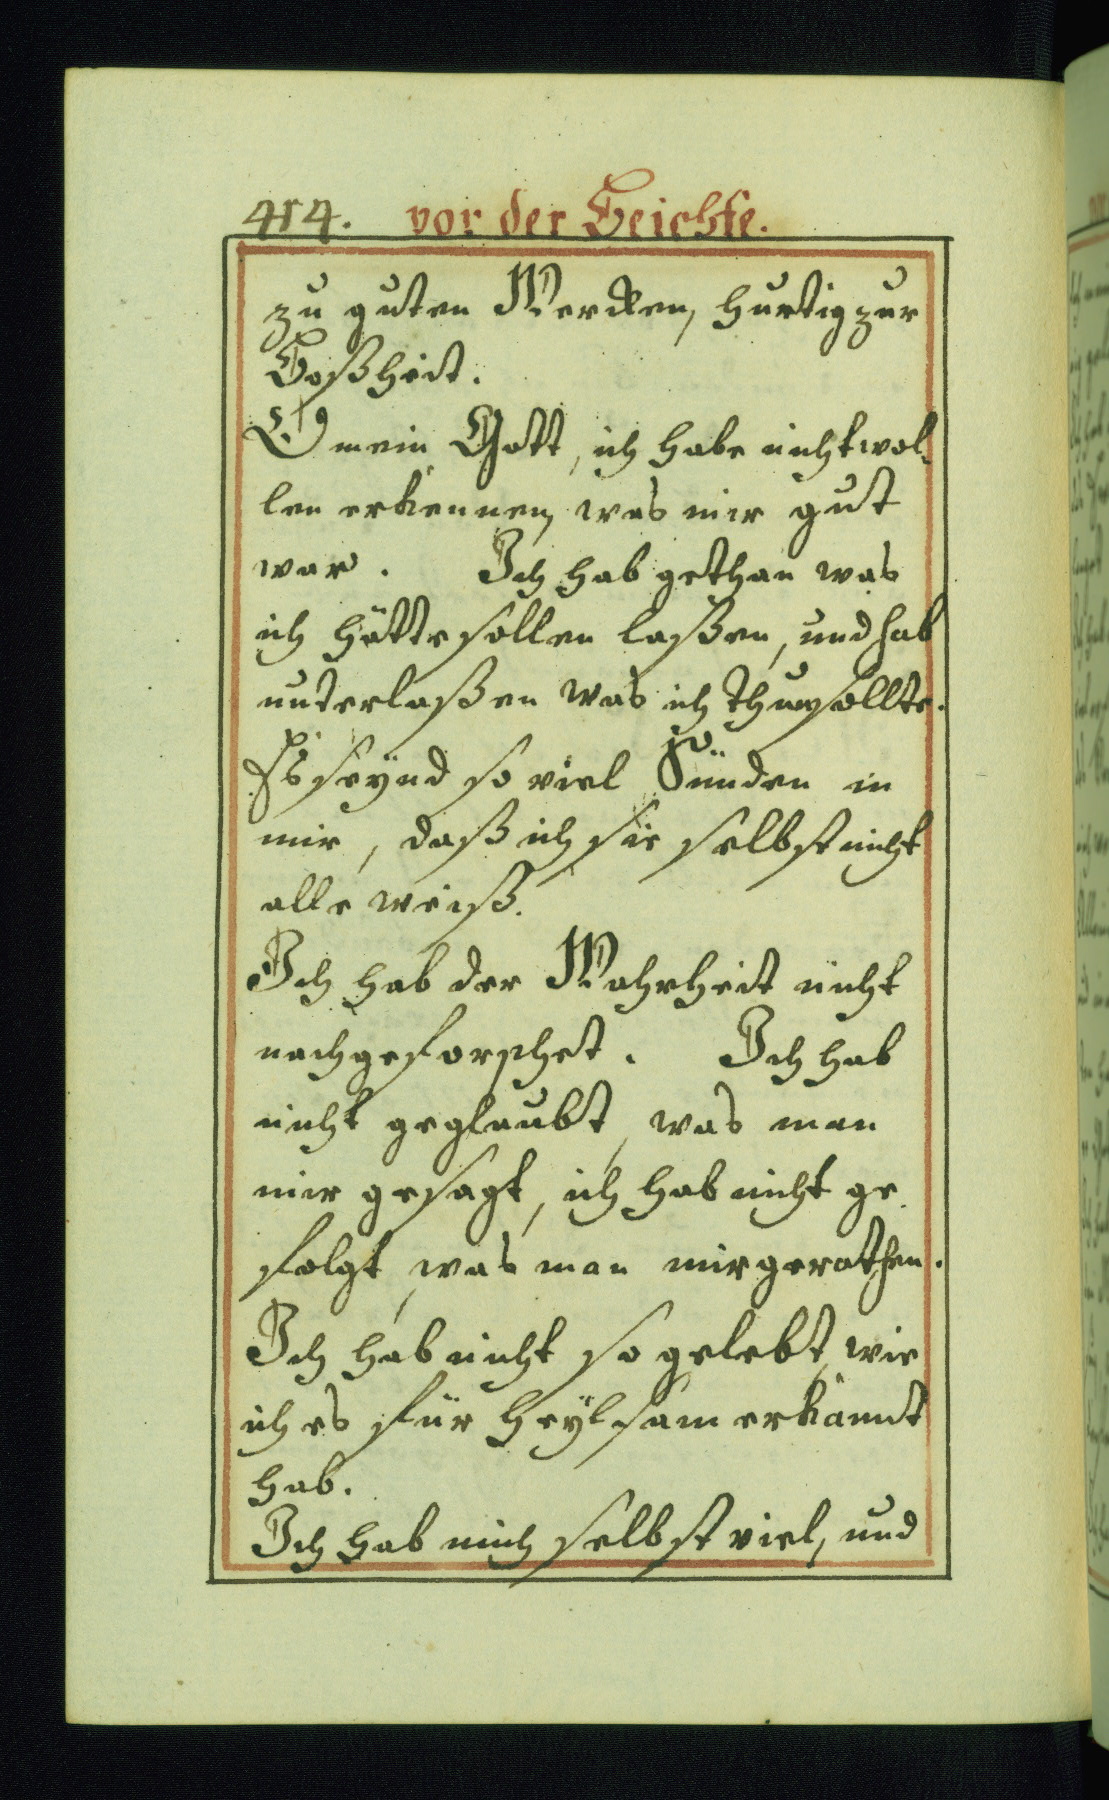 414. vor der Beichte.
zu guten Wercken, hurtig zur
Boßheit.
O mein Gott, ich habe nicht wol-
len erkennen, was mir gut
war. Ich hab gethan was
ich hätte sollen laßen, und hab
unterlaßen was ich thun sollte.
Es seynd so viel Sünden in
mir, daß ich sie selbst nicht
alle weiß.
Ich hab der Wahrheit nicht
nachgeforschet. Ich hab
nicht geglaubt, was man
mir gesagt, ich hab nicht ge
folgt, was man mir gerathen.
Ich hab nicht so gelebt, wie
ich es für heylsam erkannt
hab.
Ich hab mich selbst viel, und